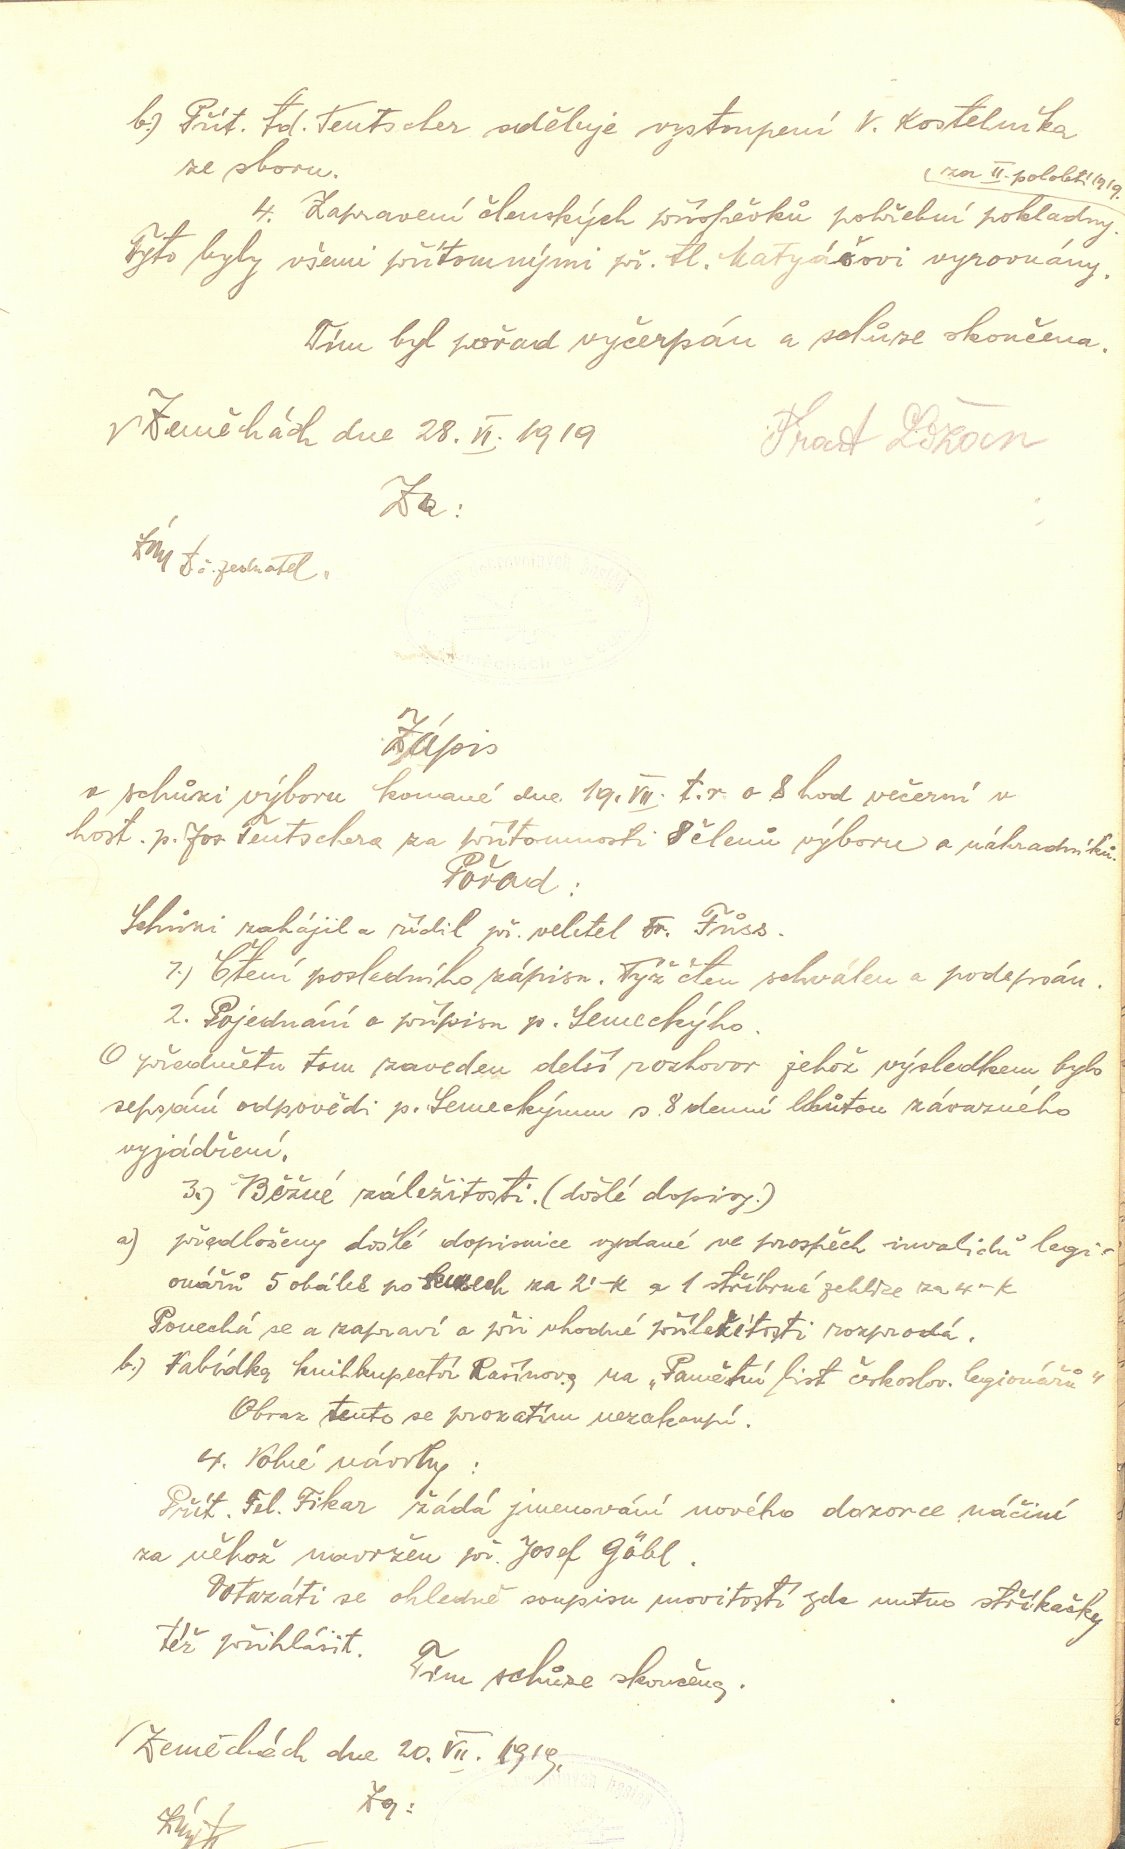 b.) Přít. td. Teutscher sděluje vystoupení V. Kostelníka
ze sboru.
za II. pololetí 1919.
4. Zapravení členských příspěvků pohřební pokladny.
Tyto byly všemi přítomnými př. tl. Matyášovi vyrovnány.
Tím byl pořad vyčerpán a schůze skončena.
V Zeměchách dne 28. VI. 1919
Za:
t. č. jednatel.
Zápis
o schůzi výboru konané dne 19. VII. t. r. o 8 hod večerní v
host. p. Jos. Teutschera za přítomnosti 8 členů výboru a náhradníků.
Pořad:
Schůzi zahájil a řídil př. velitel Fr. Füss.
1.) Čtení posledního zápisu. Týž čten schválen a podepsán.
2. Pojednání o přípisu p. Semeckýho.
O předmětu tom zaveden delší rozhovor jehož výsledkem bylo
sepsání odpovědi p. Semeckýmu s 8 denní lhůtou závazného
vyjádření.
3.) Běžné záležitosti. (došlé dopisy.)
a) předloženy došlé dopisnice vydané ve prospěch invalidů legi-
onářů 5 obálek po kusech za 2·-K a 1 stříbrná jehlice za 4-K
Ponechá se a zapraví a při vhodné příležitosti rozprodá.
b.) Nabídka knihkupectví Rašínova na „Pamětní list českoslov. legionářů"
Obraz tento se prozatím nezakoupí.
4. Volné návrhy:
Přít. Fel. Fikar žádá jmenování nového dozorce náčiní
za něhož navržen př. Josef Göbl.
Dotazáti se ohledně soupisu movitostí zda nutno stříkačky
též přihlásit.
Tím schůze skončena.
V Zeměchách dne 20. VII. 1919.
Za: